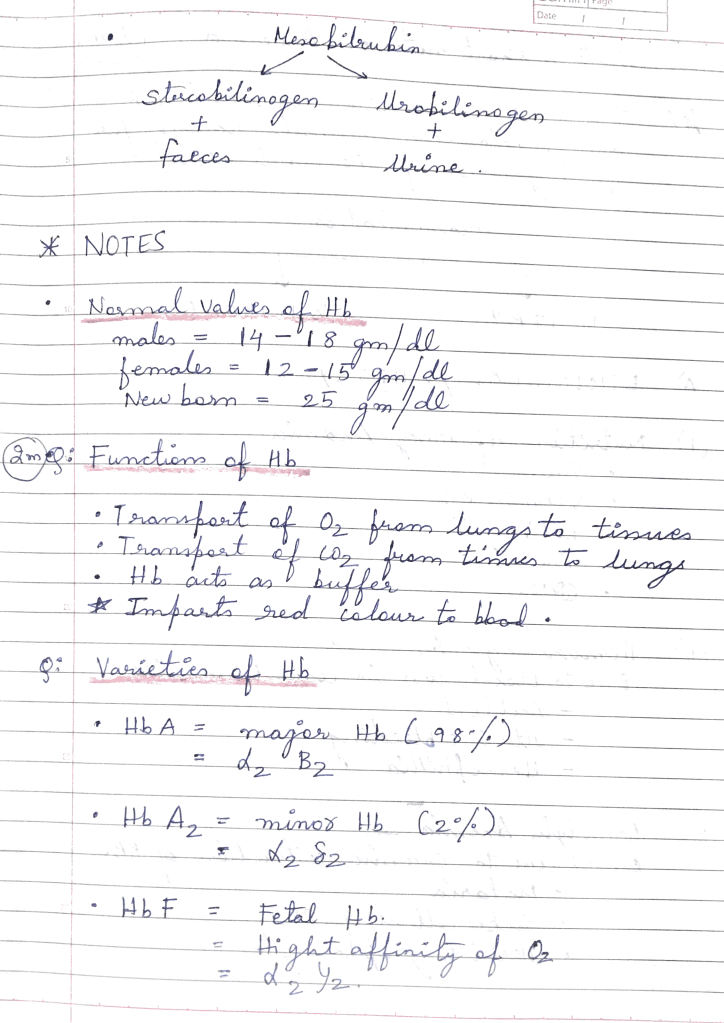 Page
Date / /
• Mesobilrubin
stercobilinogen Urobilinogen
+ +
faeces Urine.
* NOTES
• Normal values of Hb
males = 14 - 18 gm/dl
females = 12 - 15 gm/dl
New born = 25 gm/dl
2m Q: Functions of Hb
• Transport of O2 from lungs to tissues
• Transport of CO2 from tissues to lungs
• Hb acts as buffer
* Imparts red colour to blood.
Q: Varieties of Hb
• Hb A = major Hb (98%)
= α2 B2
• Hb A2 = minor Hb (2%)
= α2 δ2
• Hb F = Fetal Hb.
= Hight affinity of O2
= α2 γ2.